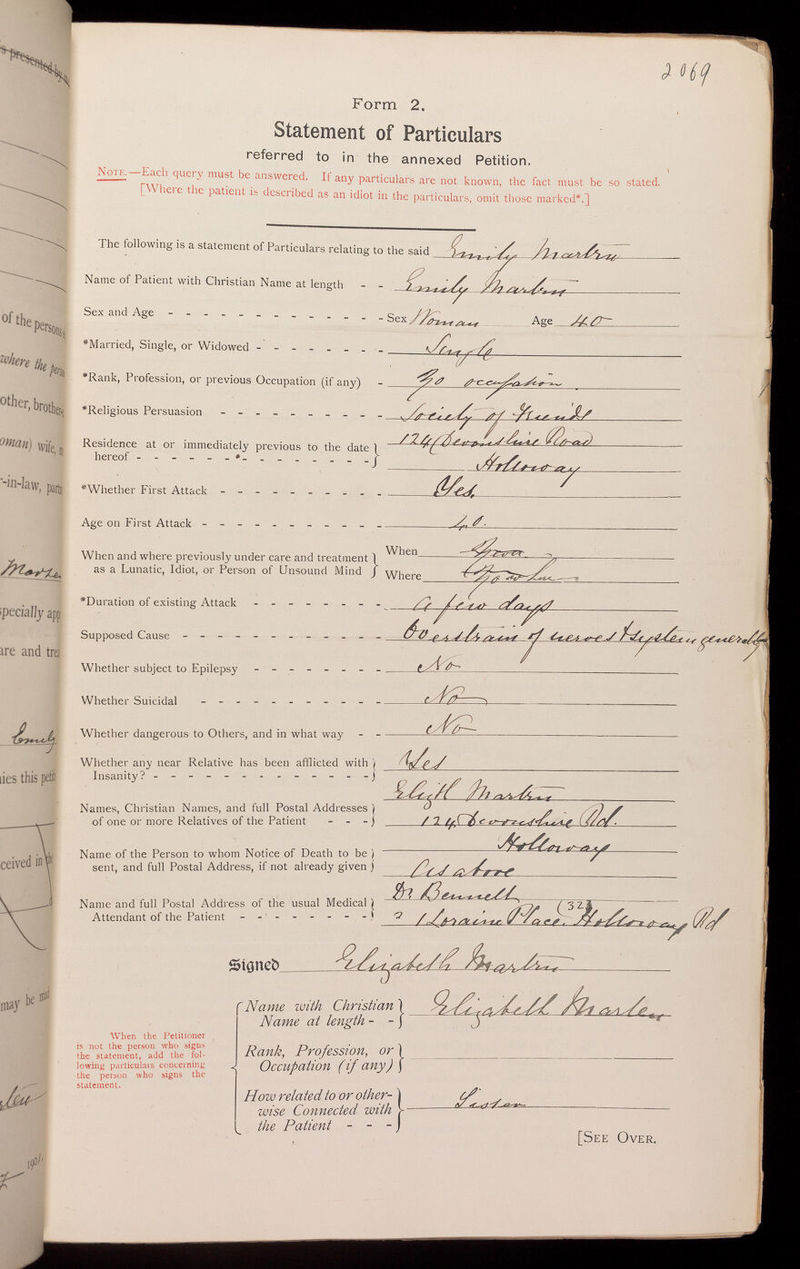 2069
Form 2.
Statement of Particulars
referred to in the annexed Petition.
NOTE.—Each query must be answered. If any particulars are not known, the fact must be so stated.
[Where the patient is described as an idiot in the particulars, omit those marked*.]
The following is a statement of Particulars relating to the said Emily Martin
Name of Patient with Christian Name at length - - Emily Martin
Sex and Age - - - - - - - - - - - - - Sex Woman Age 40
*Married, Single, or Widowed - - - - - - - - Single
*Rank, Profession, or previous Occupation (if any) - No occupation.
*Religious Persuasion - - - - - - - - - - Society of Friends
Residence at or immediately previous to the date } 124 Devonshire Road
hereof - - - - - -*- - - - - - - - } Holloway
*Whether First Attack - - - - - - - - - - Yes
Age on First Attack - - - - - - - - - - - 40.
When and where previously under care and treatment } When
as a Lunatic, Idiot, or Person of Unsound Mind } Where
*Duration of existing Attack - - - - - - - - A few days
Supposed Cause - - - - - - - - - - - - Overstrain of nerves & system generally
Whether subject to Epilepsy - - - - - - - - No
Whether Suicidal - - - - - - - - - - - No
Whether dangerous to Others, and in what way - - No
Whether any near Relative has been afflicted with } Yes
Insanity? - - - - - - - - - - - - - }
Elizth Martin
Names, Christian Names, and full Postal Addresses }
of one or more Relatives of the Patient - - - } 124 Devonshire Rd.
Holloway
Name of the Person to whom Notice of Death to be }
sent, and full Postal Address, if not already given } As above
Name and full Postal Address of the usual Medical } Dr Bennett
Attendant of the Patient - - - - - - - - } 2 Loraine Place. (32 Holloway Rd
Signed Elizabeth Martin
{ Name with Christian } Elizabeth Martin
Name at length - - }
When the Petitioner
is not the person who signs
the statement, add the fol-
lowing particulars concerning
the person who signs the
statement.
Rank, Profession, or }
Occupation (if any) }
How related to or other- }
wise Connected with } Sister
the Patient - - - }
[SEE OVER.
s presented by
of the person
where the
other, brother,
oman) wife,
-in-law,
specially
are and
Emily
ies this
ceived in
may be
1901.